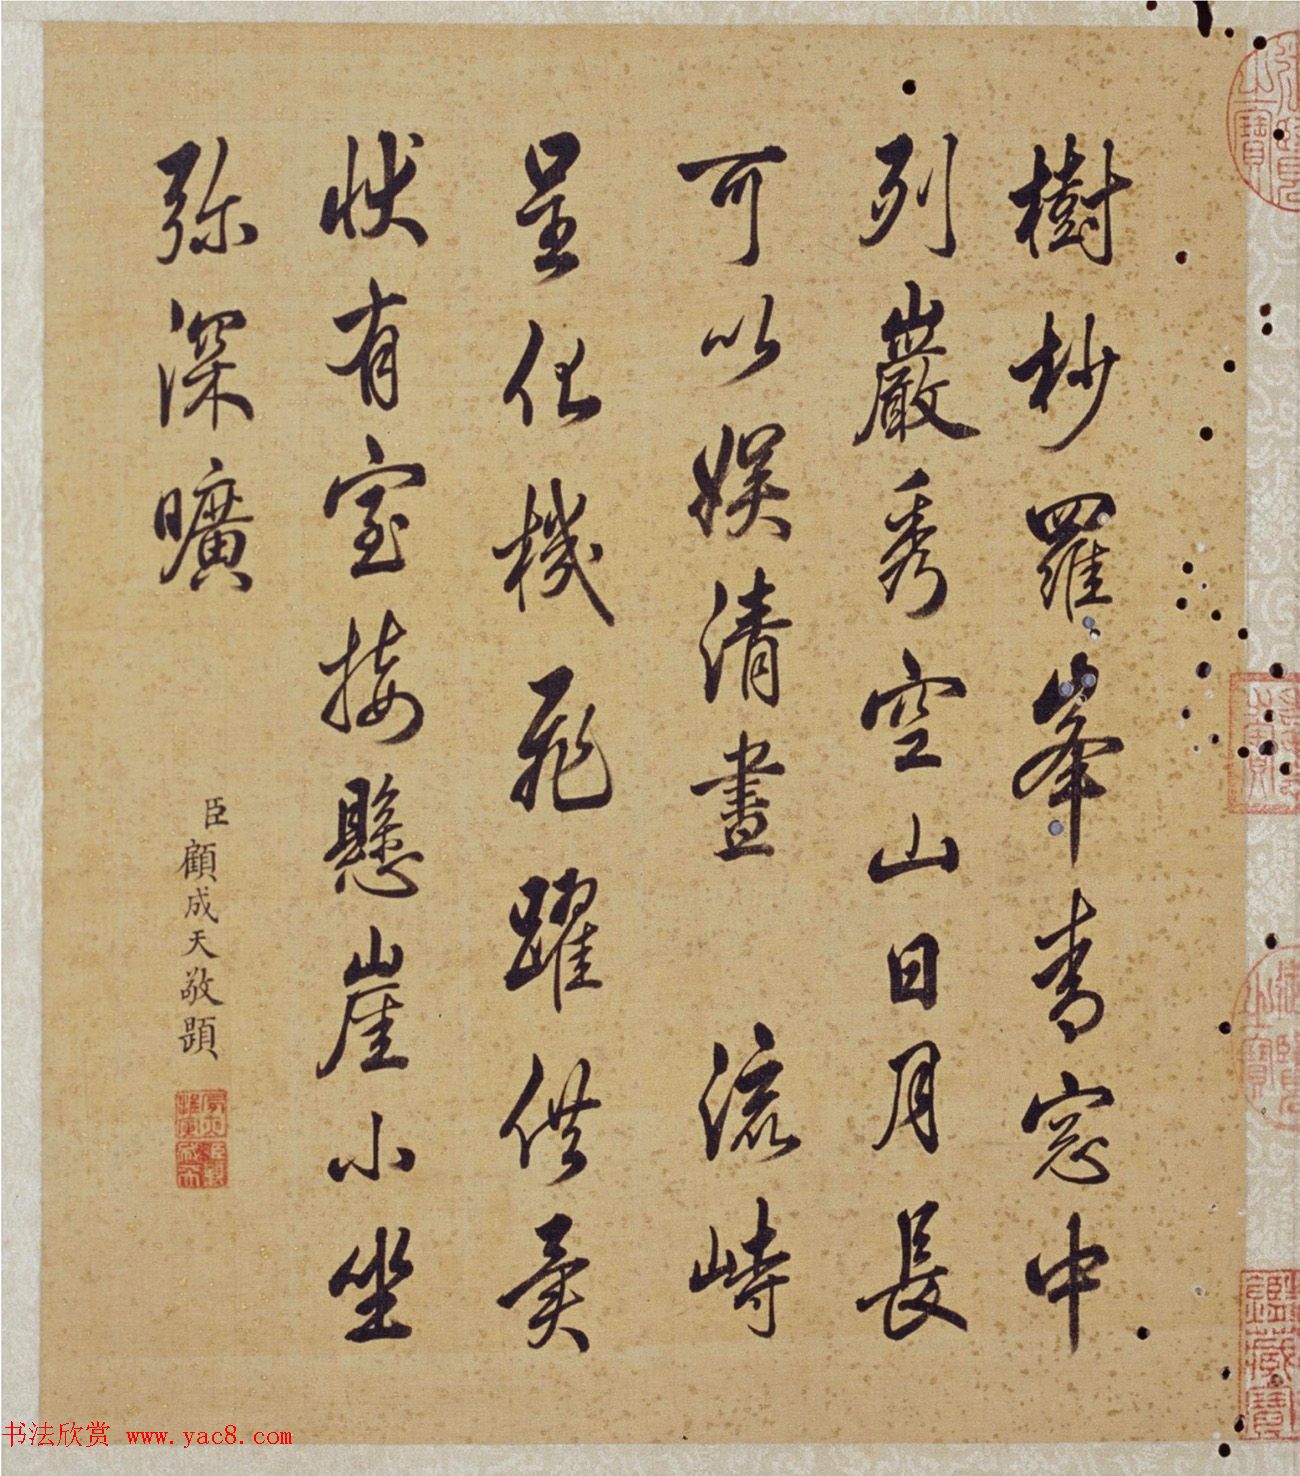 樹杪羅峯青窓中
列巖秀空山日月長
可以娱清晝 流峙
呈化機飛躍供奐
狀有室接懸崖小坐
弥深曠
臣顧成天敬題
鑑藏寶
书法欣赏 www.yac8.com